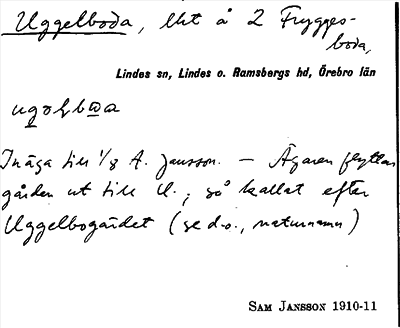 Uggelboda, lht å 2 Frygges-
boda,
Lindes sn, Lindes o. Ramsbergs hd, Örebro län
ugəlbωa
Inäga till 1/8 A. Jansson. — Ägaren flyttar
gården ut till U.; så kallat efter
Uggelbogärdet (se d.o., naturnamn)
SAM JANSSON 1910-11